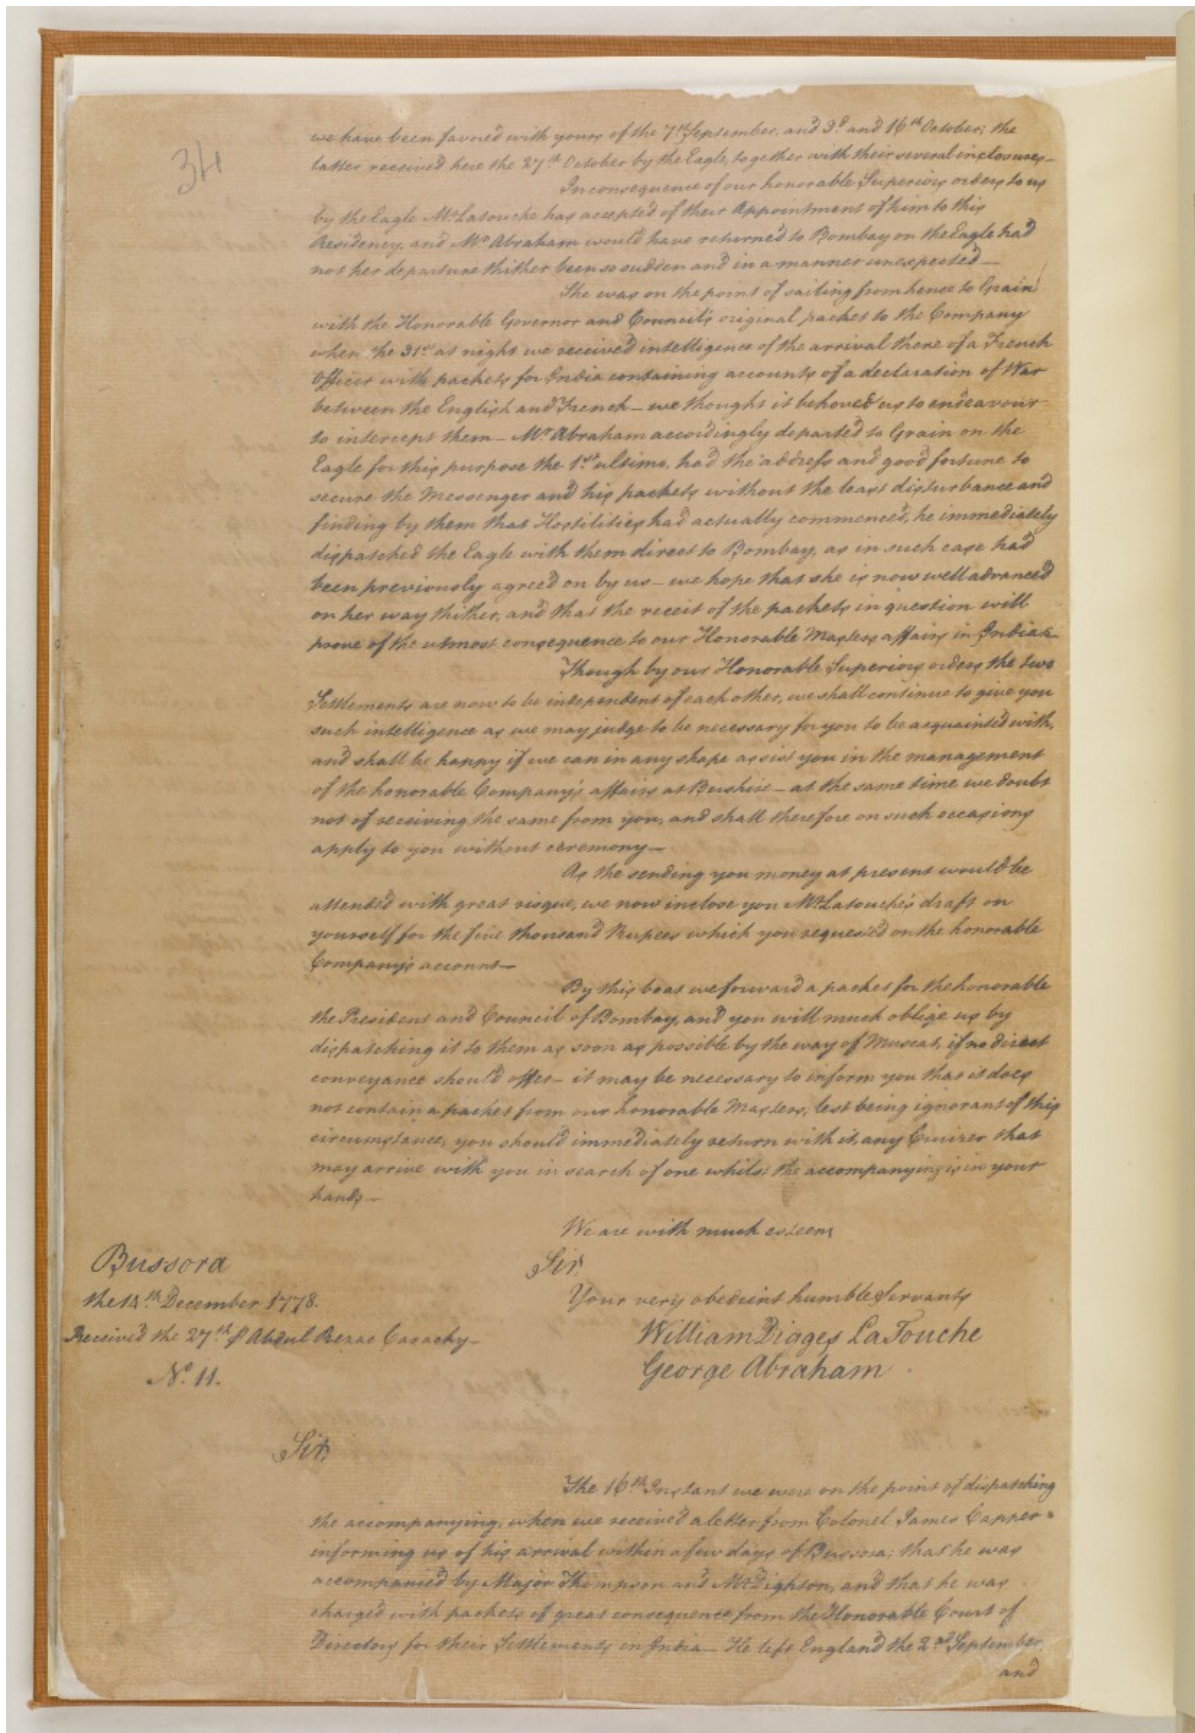 34
we have been favored with yours of the 7th September, and 3d and 16th October; the
latter received here the 27th October by the Eagle, together with their several inclosures —
In consequence of our honorable Superiors orders to us
by the Eagle Mr Latouche has accepted of their Appointment of him to this
Residency, and Mr Abraham would have returned to Bombay on the Eagle had
not her departure thither been so sudden and in a manner unexpected —
She was on the point of sailing from hence to Grain
with the Honorable Governor and Council's original packet to the Company
when the 31st at night we received intelligence of the arrival there of a French
Officer with packets for India containing accounts of a declaration of War
between the English and French — we thought it behoved us to endeavour
to intercept them — Mr Abraham accordingly departed to Grain on the
Eagle for this purpose the 1st ultimo, had the address and good fortune to
secure the Messenger and his packets without the least disturbance and
finding by them that Hostilities had actually commenced, he immediately
dispatched the Eagle with them direct to Bombay, as in such case had
been previously agreed on by us — we hope that she is now well advanced
on her way thither, and that the receit of the packets in question will
prove of the utmost consequence to our Honorable Masters affairs in India —
Though by our Honorable Superiors orders the two
Settlements are now to be independent of each other, we shall continue to give you
such intelligence as we may judge to be necessary for you to be acquainted with,
and shall be happy if we can in any shape assist you in the management
of the honorable Company's affairs at Bushire — at the same time we doubt
not of receiving the same from you, and shall therefore on such occasions
apply to you without ceremony —
As the sending you money at present would be
attended with great risque, we now inclose you Mr Latouche's draft on
yourself for the five thousand Rupees which you requested on the honorable
Company's account —
By this boat we forward a packet for the honorable
the President and Council of Bombay, and you will much oblige us by
dispatching it to them as soon as possible by the way of Muscat, if no direct
conveyance should offer — it may be necessary to inform you that it does
not contain a packet from our honorable Masters, lest being ignorant of this
circumstance, you should immediately return with it, any Cruizer that
may arrive with you in search of one whilst the accompanying is in your
hands —
We are with much esteem
Sir
Your very obedient humble Servants
William Digges LaTouche
George Abraham
Bussora
the 14th December 1778.
Received the 27th ⅌ Abdul Rezac Carachy —
No. 11.
Sir
The 16th Instant we were on the point of dispatching
the accompanying, when we received a letter from Colonel James Capper
informing us of his arrival within a few days of Bussora; that he was
accompanied by Major Thompson and Mr Dighton, and that he was
charged with packets of great consequence from the Honorable Court of
Directors for their Settlements in India — He left England the 2nd September
and